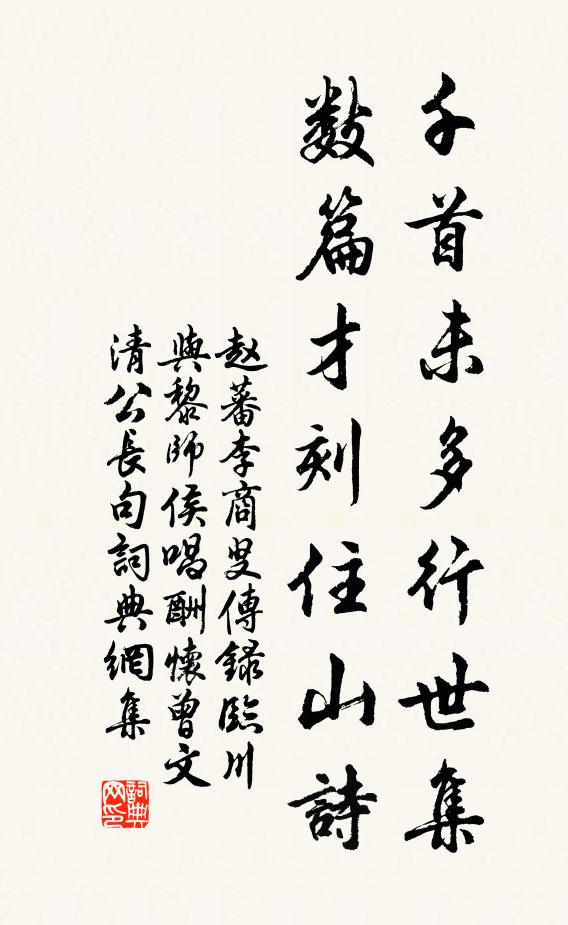 千首未多行世集
数篇才刻住山詩
赵蕃李商叟傳錄臨川
與黎師侯唱酬懷曾文
清公長句詞典網集
詞典
网印